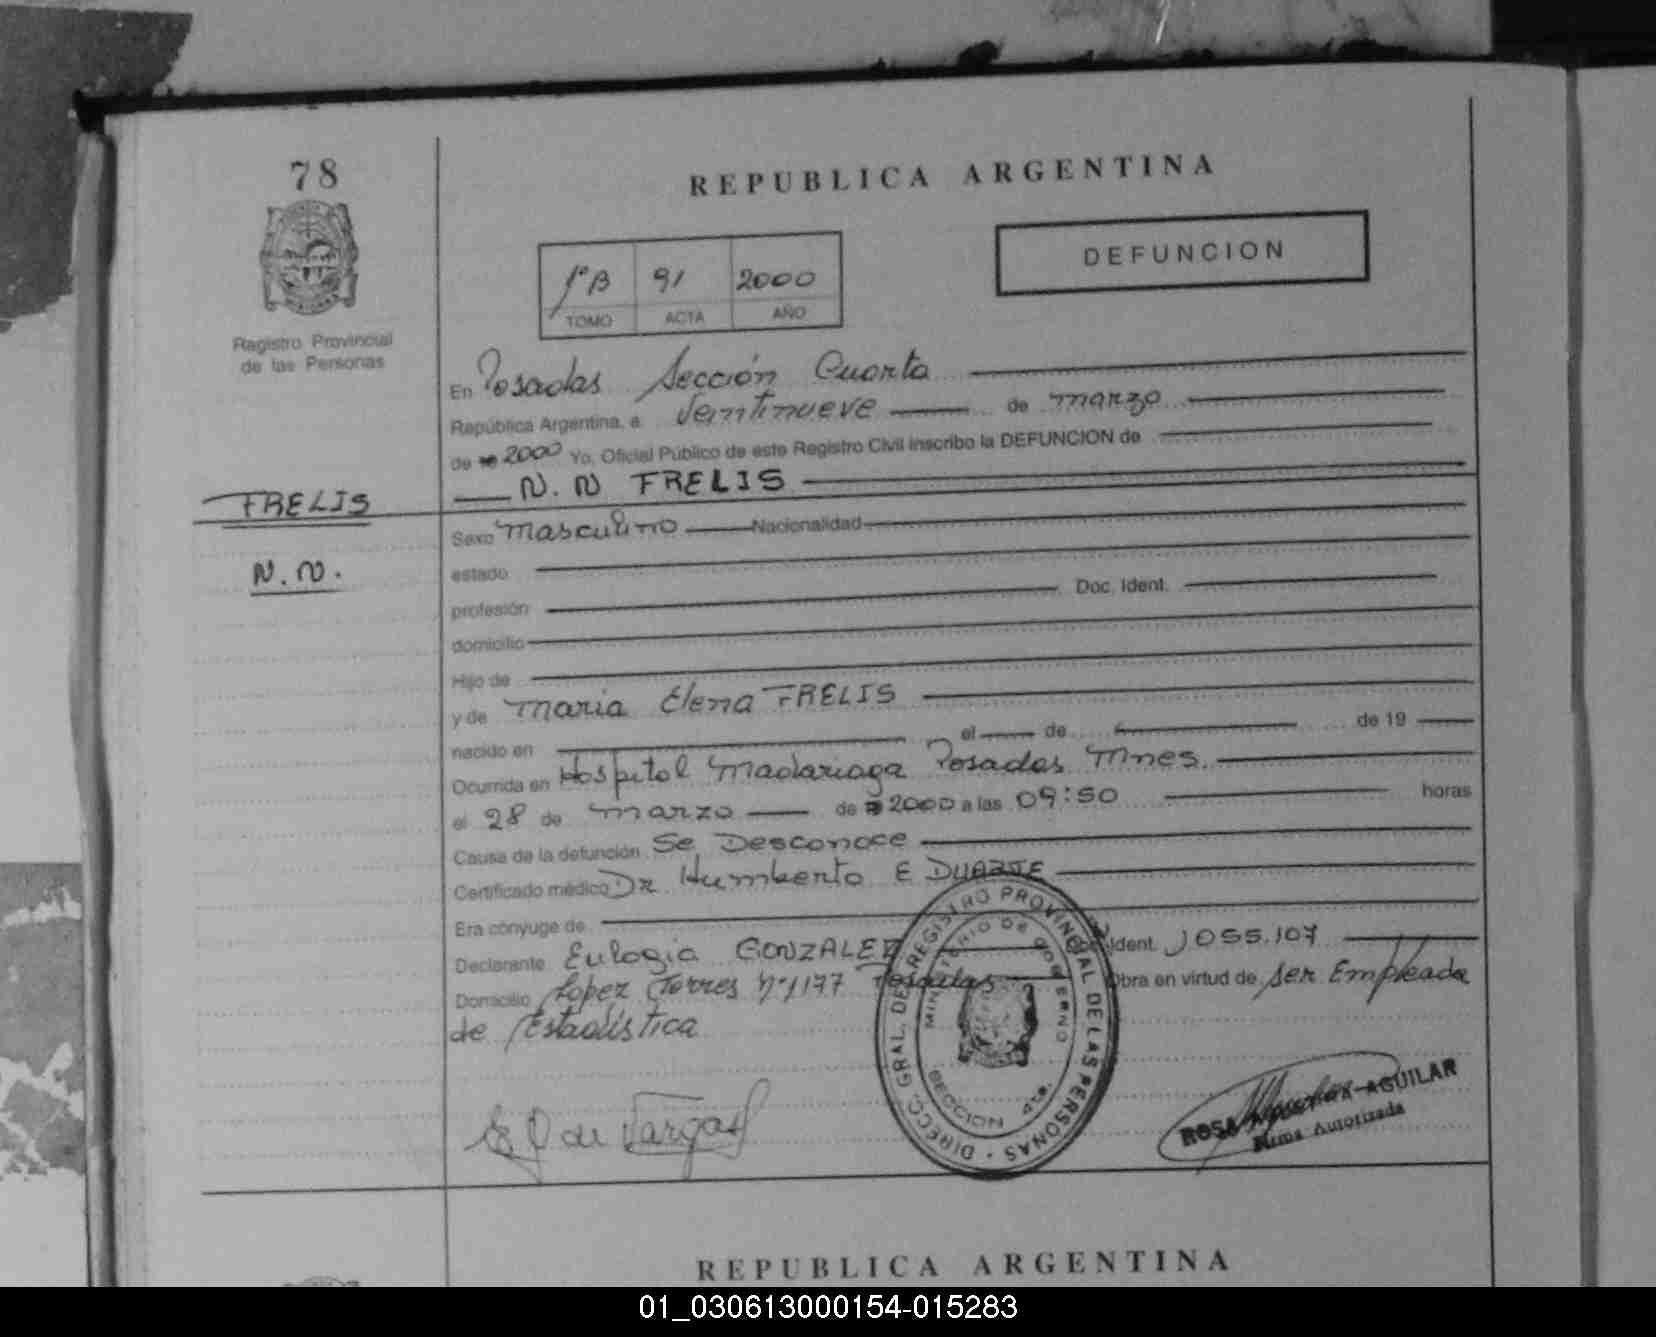 78
REPUBLICA ARGENTINA
DEFUNCION
1º B 91 2000
TOMO ACTA AÑO
Registro Provincial
de las Personas
En Posadas Sección Cuarta
República Argentina, a Veintinueve de marzo
de 2000 Yo, Oficial Público de este Registro Civil inscribo la DEFUNCION de
N.N FRELIS
FRELIS
N.N.
Sexo masculino Nacionalidad
estado
profesión Doc. Ident.
domicilio
Hijo de
y de Maria Elena FRELIS
nacido en el de de 19
Ocurrida en Hospital Madariaga Posadas Mnes.
el 28 de marzo de 2000 a las 09:50 horas
Causa de la defunción Se Desconoce
Certificado médico Dr Humberto E DUARTE
Era cónyuge de
Declarante Eulogia GONZALEZ Doc. Ident. 1055.107
Domicilio Lopez Torres Nº 1177 Posadas Obra en virtud de ser Empleada
de Estadística
DIRECC. GRAL. DEL REGISTRO PROVINCIAL DE LAS PERSONAS
MINISTERIO DE GOBIERNO
SECCION 4ta.
E G de Vargas
ROSA AGUILAR
Firma Autorizada
REPUBLICA ARGENTINA
01_030613000154-015283